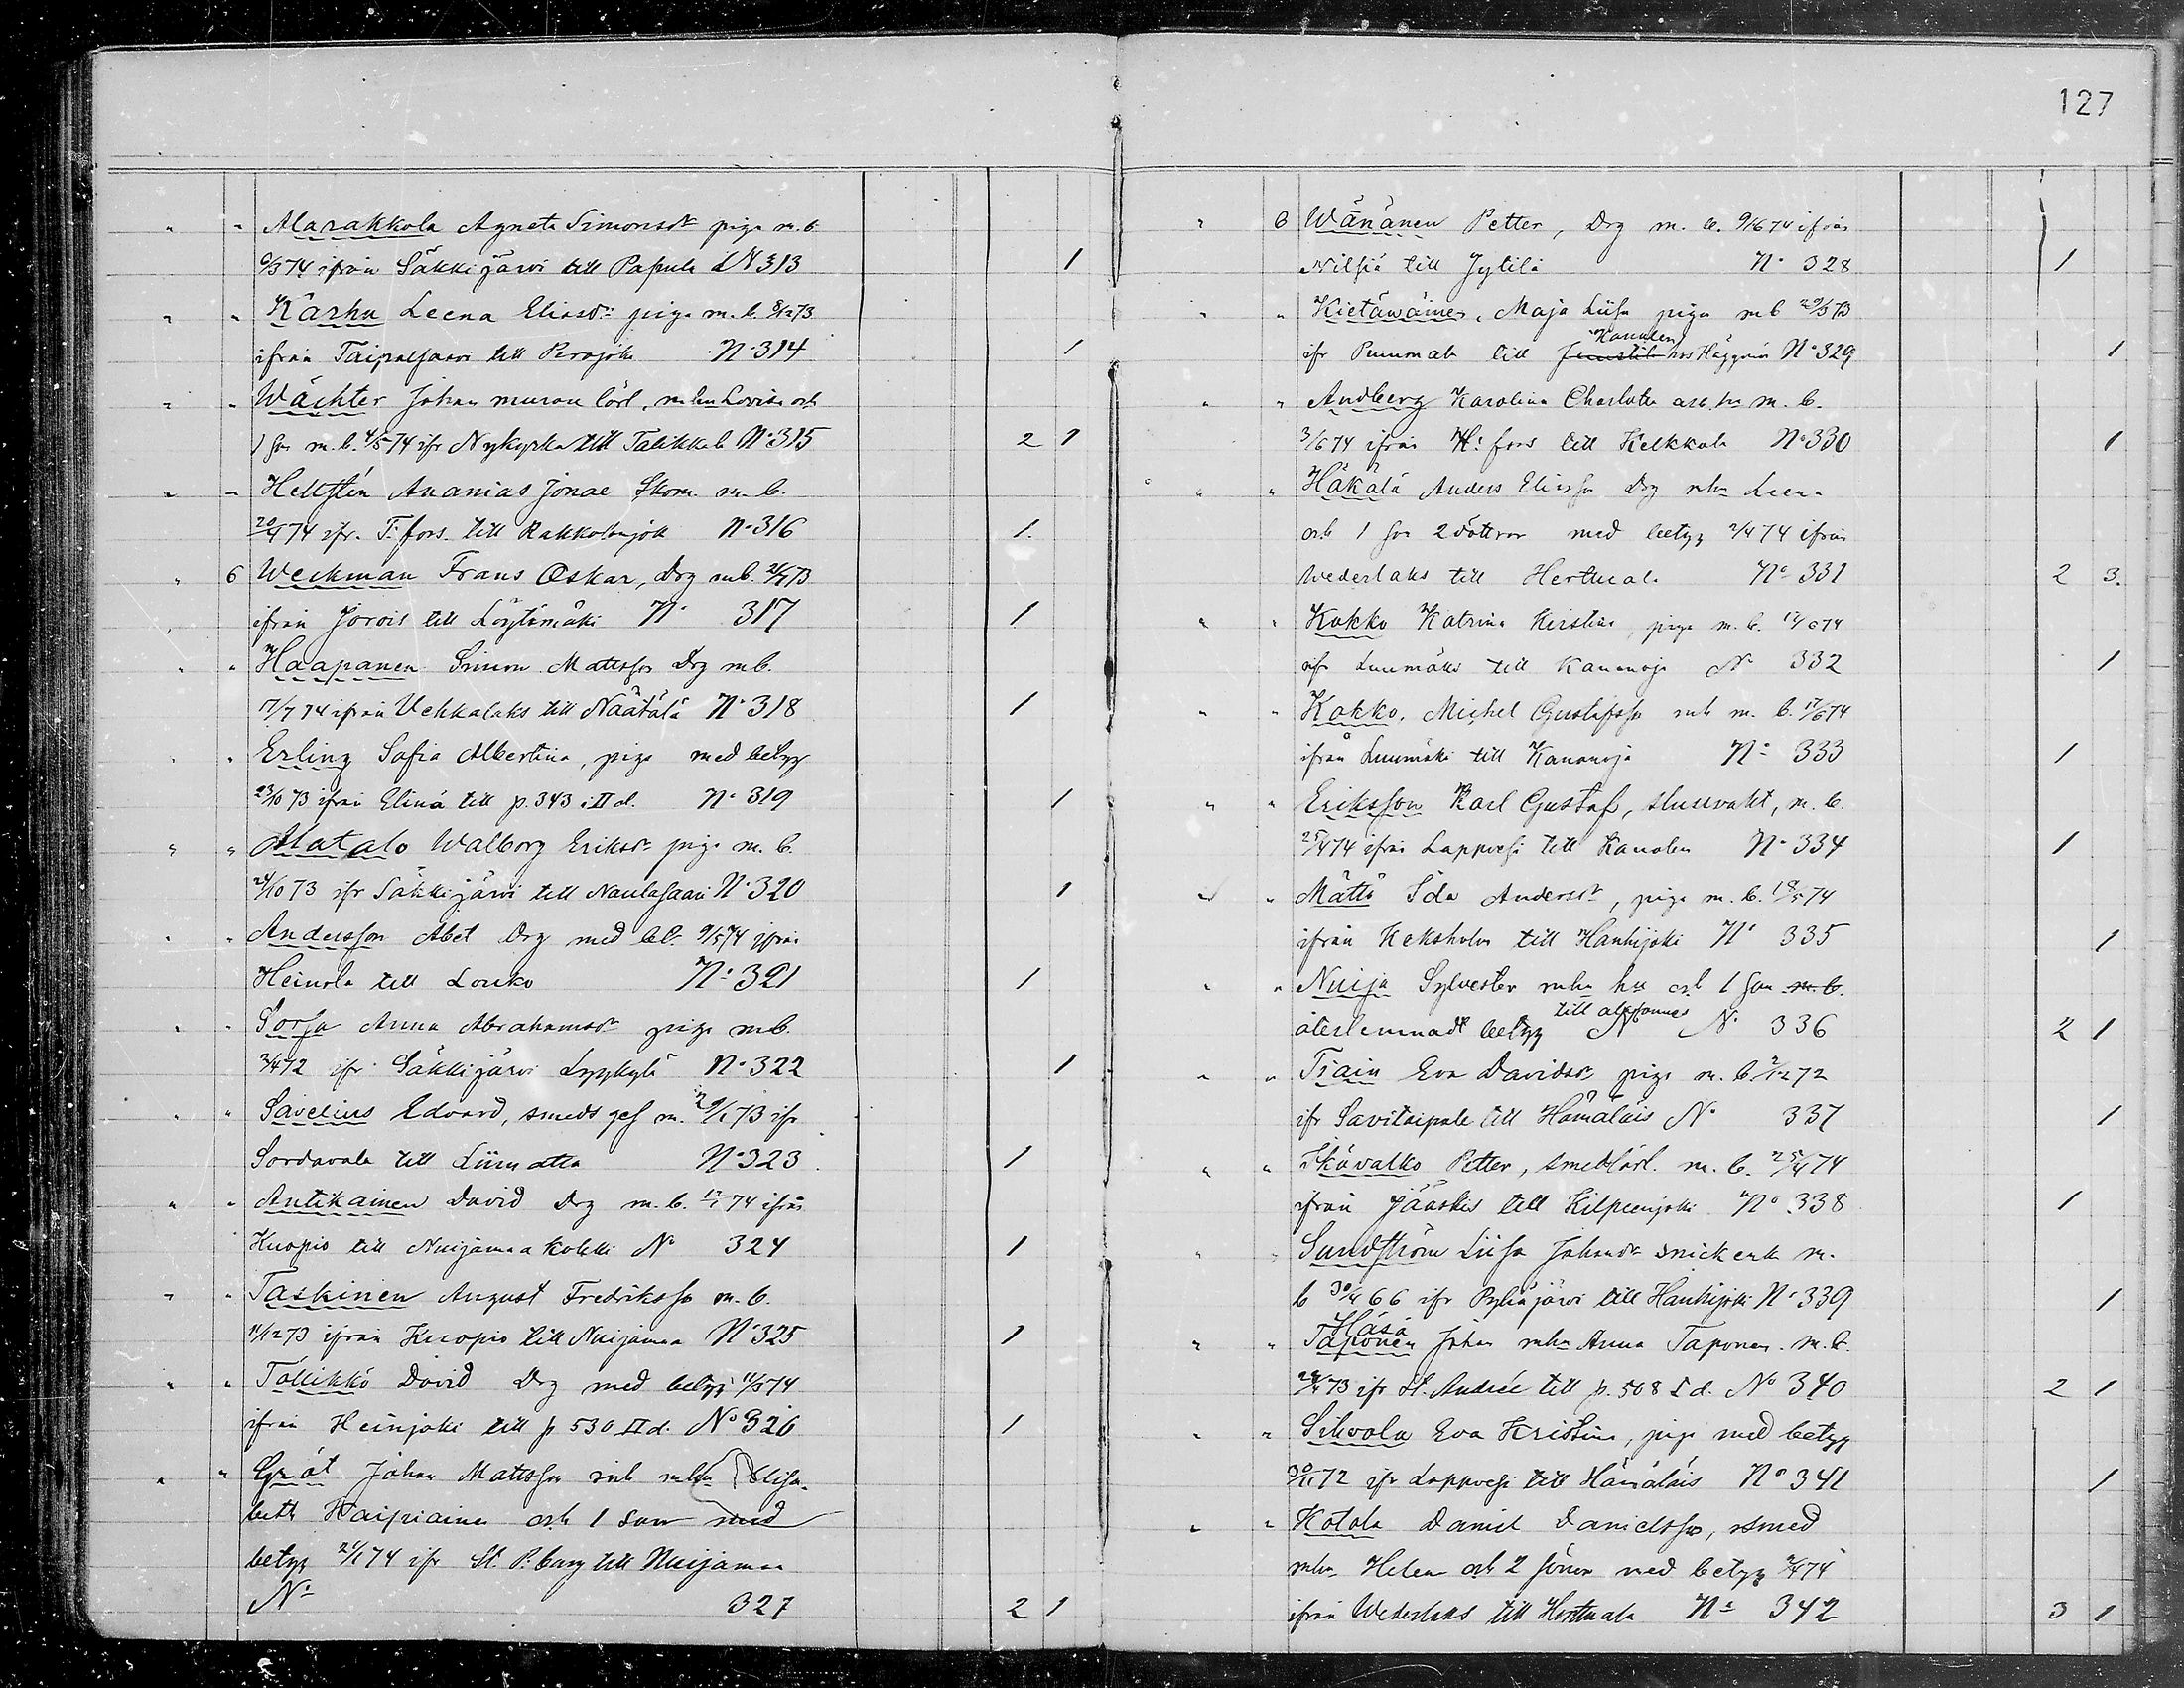 127
" " Alarakkola Agneta Simonsdr piga m.b.
6/3 74 ifrån Säkkijärvi till Papula N 313 1
" " Karhu Leena Eliasdr piga m.b. 8/12 73
ifrån Taipalsaari till Perojoki N:o 314 1
" " Wächter Johan murare lärl. m hu Lovisa och
1 son m.b. 4/5 74 ifr Nykyrka till Talikkala N:o 315 2 1
" " Hellstén Ananias Jonae Skom. m.b.
20/4 74 ifr. T:fors till Rakkolanjoki N:o 316 1.
" 6 Weckman Frans Oskar, Drg mb. 21/7 73
ifrån Jorois till Löytömäki N:o 317 1
" " Haapanen Simon Matsson Drg mb.
17/7 74 ifrån Vehkalaks till Näätälä N:o 318 1
" " Erling Sofia Albertina, piga med betyg
23/10 73 ifrån Elimä till p. 343 i II d. N:o 319 1
" " Alatalo Walborg Eriksdr piga m.b.
24/10 73 ifr Säkkijärvi till Naulasaari N:o 320 1
" " Andersson Abel Drg med bt. 9/5 74 ifrån
Heinola till Louko N:o 321 1
" " Sorsa Anna Abrahamsdr piga mb.
3/4 72 ifr Säkkijärvi Lyykylä N:o 322 1
" " Savelius Edvard, smeds ges m. 29/1 73 ifr
Sordavala till Liimatta N:o 323 1
" " Antikainen David Drg m.b. 12/1 74 ifrån
Kuopio till Nuijamaa kolkki N:o 324 1
" " Taskinen August Fredriksson m.b.
11/12 73 ifrån Kuopio till Nuijamaa N:o 325 1
" " Töllikkö David Drg med betyg 11/5 74
ifrån Heinjoki till p 530 II d. N:o 326 1
" " Gröt Johan Mattsson inh m hu Elisa-
beth Haipiainen och 1 son med
betyg 21/1 74 ifr St. P:burg till Nuijamaa
N:o 327 2 1
" 6 Wänänen Petter, Drg m. b. 9/6 74 ifrån
Nilsiä till Jytilä N:o 328 1
" " Kietäwäinen, Maja Liisa piga mb 29/3 73
Kanalen
ifr Pummala till hos Häggrén N:o 329 1
" " Andberg Karolina Charlotta arb. hu m. b.
3/6 74 ifrån H:fors till Kelkkala N:o 330 1
" " Häkälä Anders Eliasson Drg mhu Leena
och 1 son 2 döttrar med betyg 2/4 74 ifrån
Wederlaks till Herttuala N:o 331 2 3.
" " Kokko Katrina Kirstina, piga m.b. 17/6 74
ifr Luumäki till Kananoja N:o 332 1
" " Kokko, Michel Gustafsson inh m. b. 17/6 74
ifrån Luumäki till Kananoja N:o 333 1
" " Eriksson Karl Gustaf, slussvakt, m.b.
25/4 74 ifrån Lappvesi till Kanalen N:o 334 1
" " Mättö Ida Andersdr, piga m.b. 18/5 74
ifrån Keksholm till Hanhijoki N:o 335 1
" " Nuija Sylvester mhu hu och 1 son m.b.
återlemnadt betyg N:o 336 2 1
" " Tiain Eva Davidsdr piga m.b. 2/12 72
ifr Savitaipale till Hämäläis N:o 337 1
" " Skövalko Petter, smedslärl. m. b. 25/4 74
ifrån Jääskis till Kilpeenjoki N:o 338 1
" " Sundström Liisa Johansdr snickerk m.
b 30/4 66 ifr Pyhäjärvi till Hanhijoki N:o 339 1
Häsä
" " Taponen Johan mhu Anna Taponen m.b.
29/4 73 ifr St. Andreæ till p. 508 I d. N:o 340 2 1
" " Sihvola Eva Kristina, piga med betyg
30/11 72 ifr Lappvesi till Hämäläis N:o 341 1
" " Kotola Daniel Danielsson, smed
mhu Helena och 2 söner med betyg 2/4 74
ifrån Wederlaks till Herttuala N:o 342 3 1